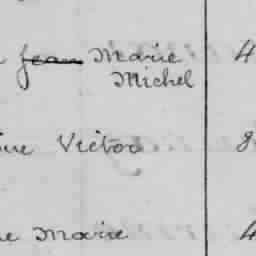 Jean Marie 4
Michel
Victor 8
Marie 4